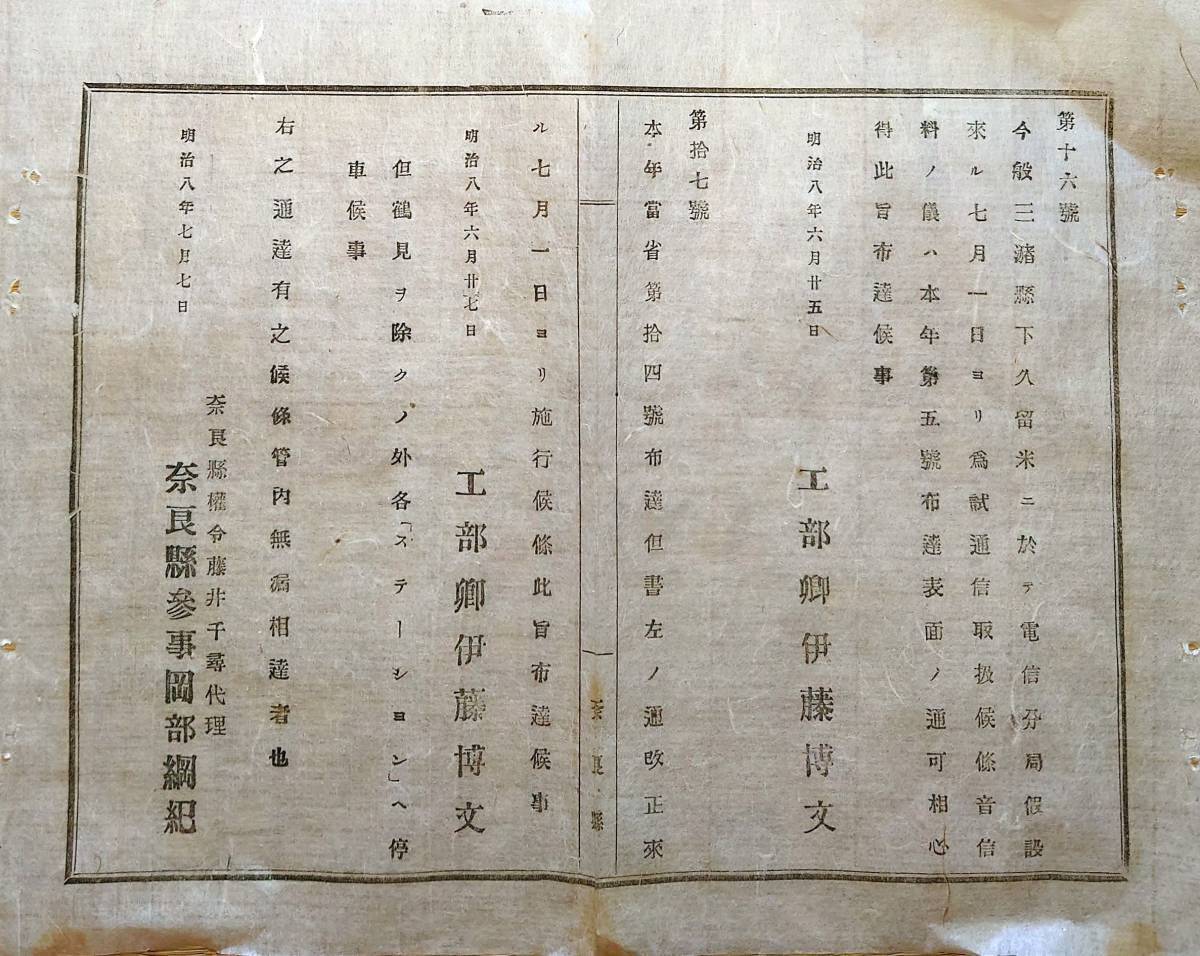 第十六號
今般三潴縣下久留米ニ於テ電信分局假設
來ル七月一日ヨリ爲試通信取扱候條音信
料ノ儀ハ本年第五號布達表面ノ通可相心
得此旨布達候事
明治八年六月廿五日
工部卿伊藤博文
第拾七號
本年當省第拾四號布達但書左ノ通改正來
奈良縣
ル七月一日ヨリ施行候條此旨布達候事
明治八年六月廿七日
工部卿伊藤博文
但鶴見ヲ除クノ外各「ステーシヨン」ヘ停
車候事
右之通達有之候條管内無漏相達者也
明治八年七月七日
奈良縣權令藤井千尋代理
奈良縣參事岡部綱紀